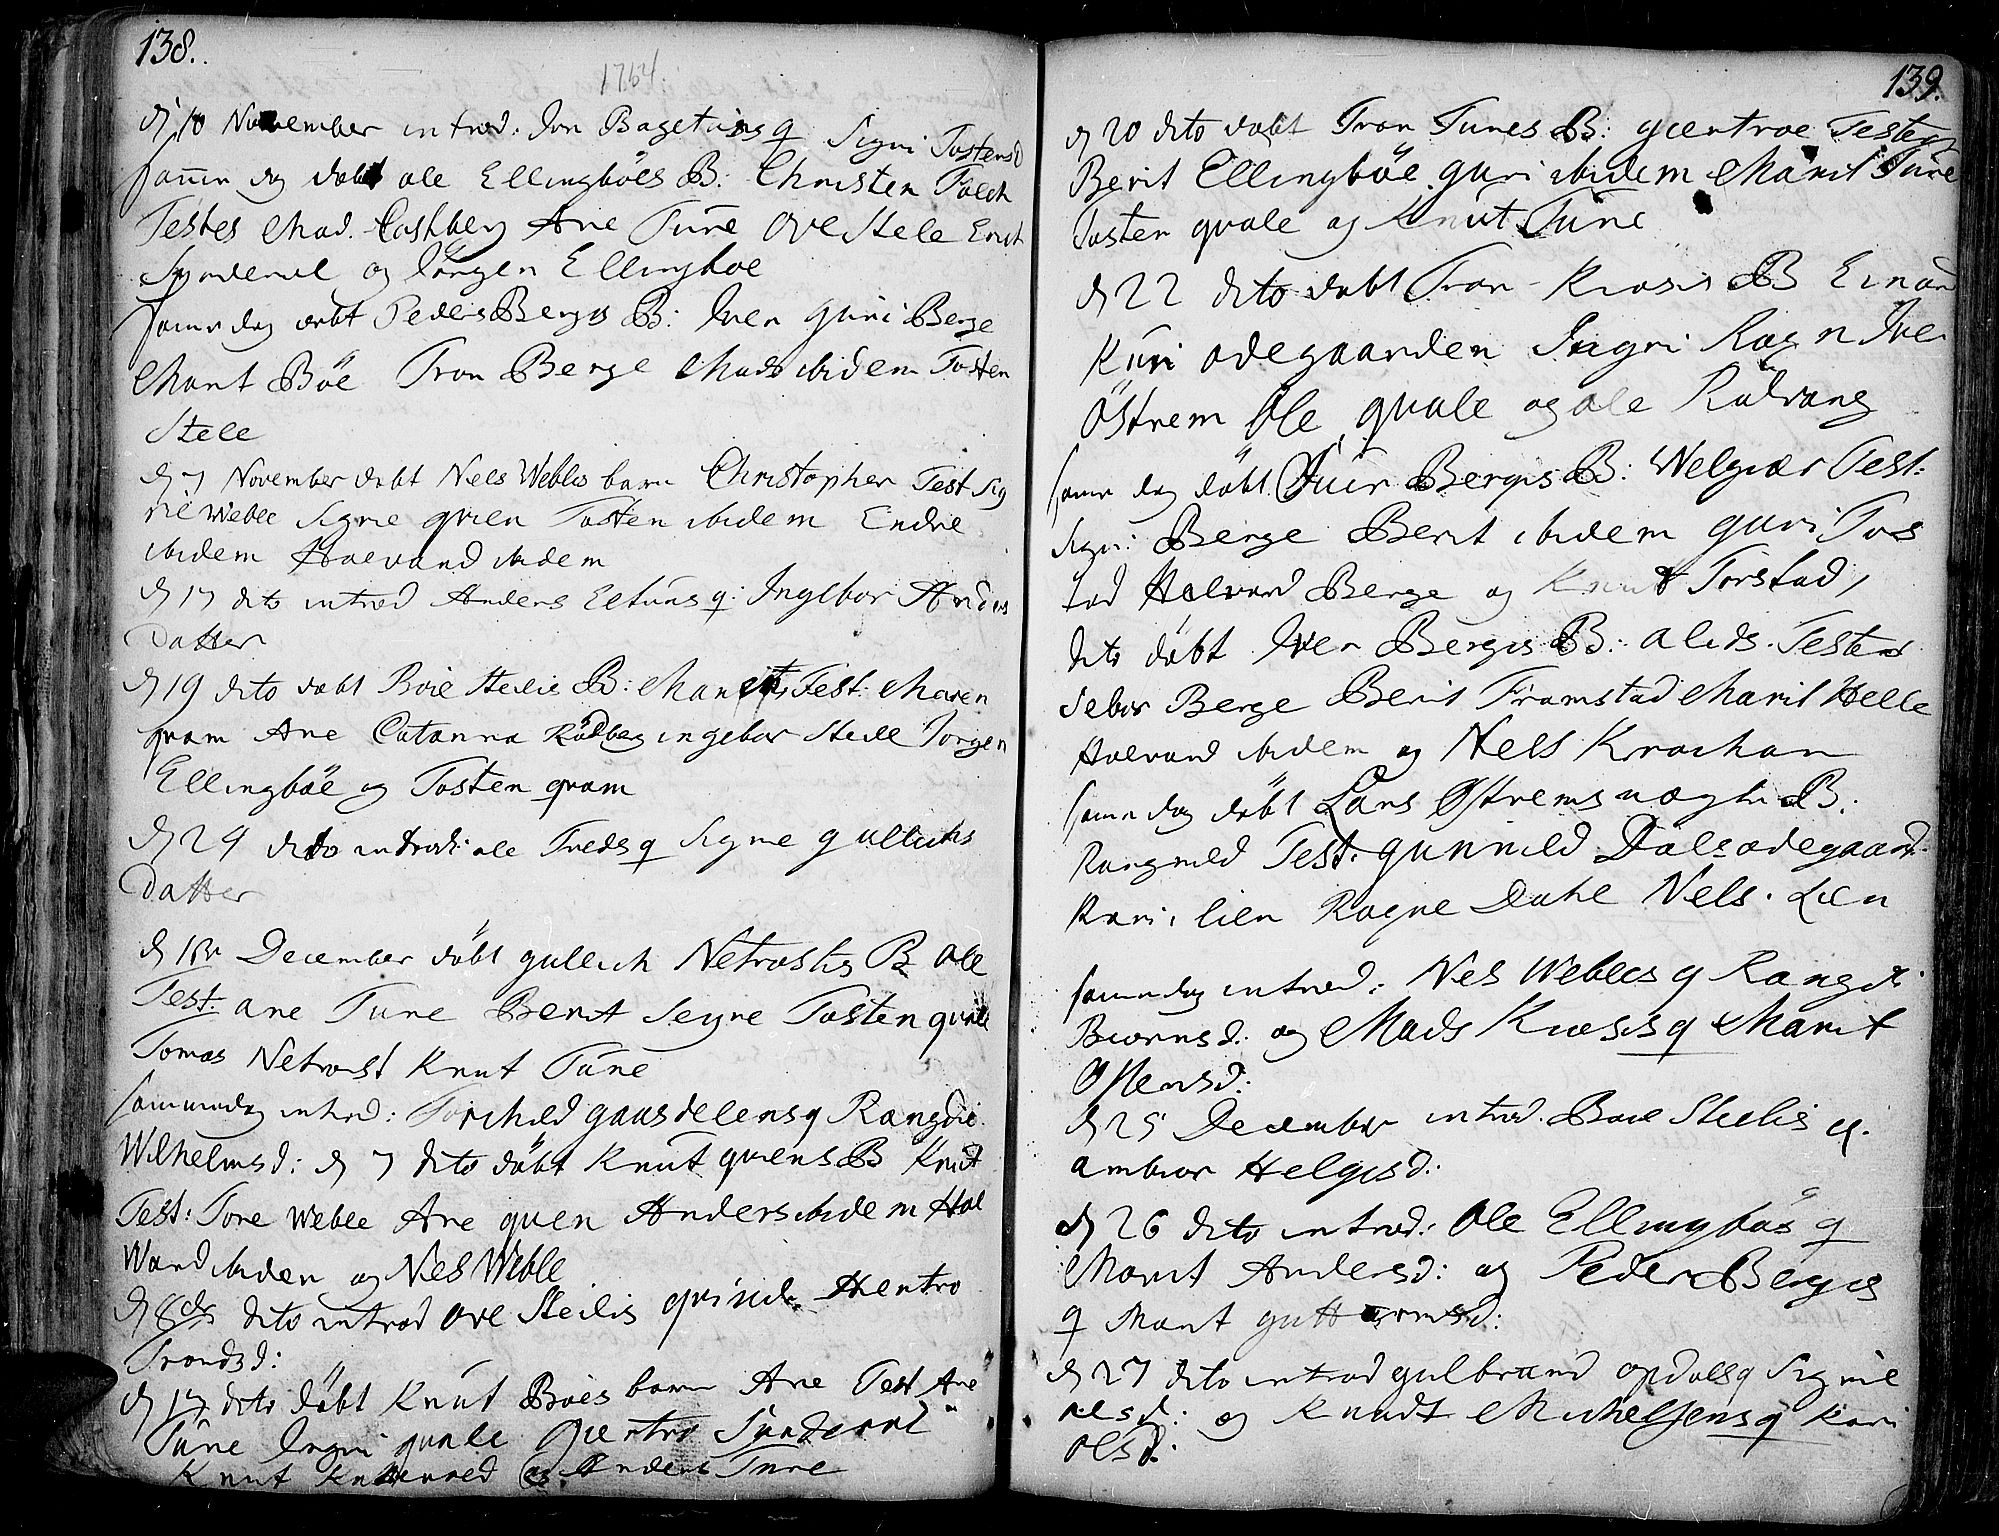 138.
1764
d 10 November introd: Iver Bagetuns q Signi Tostensd
samme dag døbt ole Ellingböes B: Christen Falch
Testes Mad. Castberg Ane Tune Ove Stele Erich
Synderoul og Iörgen Ellingboe
samme dag døbt Peders Berges B: Iver guri Berge
Marit Böe Tron Berge Mads ibidem Tosten
Stele
d 7 November døbt Nels Webles barn Christopher Test Sig
rie Weble Signe qvien Tosten ibidem Endre
ibidem Halvard ibidem
d 17 dito introd Anders Eltuns q: Ingebor Anders
Datter
d 19 dito døbt Boie Steilis B: Marit Test: Maren
qvam Ane Catarina Rødberg ingebor Steile Jørgen
Ellingböe og Tosten qvam
d 24 dito introd: ole Tveds q Signe gullichs
Datter
d December döbt gullich Netrosts B ole
Test. ane Tune Berit Seyne Tosten qvale
Tomas Netrost Knut Tune
sammedag introd: Torchild gausdelens q Rangdie
Wilhelmsd: d 7 dito döbt Knut qviens B Knut
Test: Tore Weble Ane qvien Anders ibidem Hal
Ward ibiden og Nels Weble
d 8de dito introd Ove Steilis qvinde Hentro
Trondsd:
d 17 dito döbt Knut Böes barn Ane Test Ane
Tune Ingri qvale gientro Synderoul
Knut og Anders Tune
139.
d 20 dito døbt Tron Tunes B: gientroe Testes
Berit Ellingböe guri ibidem Marit Tune
Tosten qvale og Knut Tune
d 22 dito døbt Tron Kiøsis B Einar
Kari ødegaarden Sigri Rogn Iver
Östrem Ole qvale og ole Rudvang
samme dag döbt Iver Berges B: Welgier Test:
Sigri: Berge Berit ibidem guri Tos
tad Halvord Berge og Knut Torstad,
dito döbt Iver Berges B: alids. Testes
Sebor Berge Berit Framstad Marit Helle
Halvord ibidem og Nels
samme dag döbt Lars Østrems uægte B:
Rangnild Test. gunnild Dals ødegaard.
Kari, lien Ragne Dahl Nels. Lien
samme dag introd: Nels Webles q Rangdi
Biørnsd: og Mads Kiøsis q Marit
Ostensd:
d 25 December introd. Boie Steilis q.
ambior Helgesd:
d 26 dito introd: Ole Ellingböes q
Marit Andersd: og Peder Berges
q Marit guttormsd:
d 27 dito introd gulbrand opdals q Signe
nelsd: og Knudt Michelsens q Kari
Olsd: